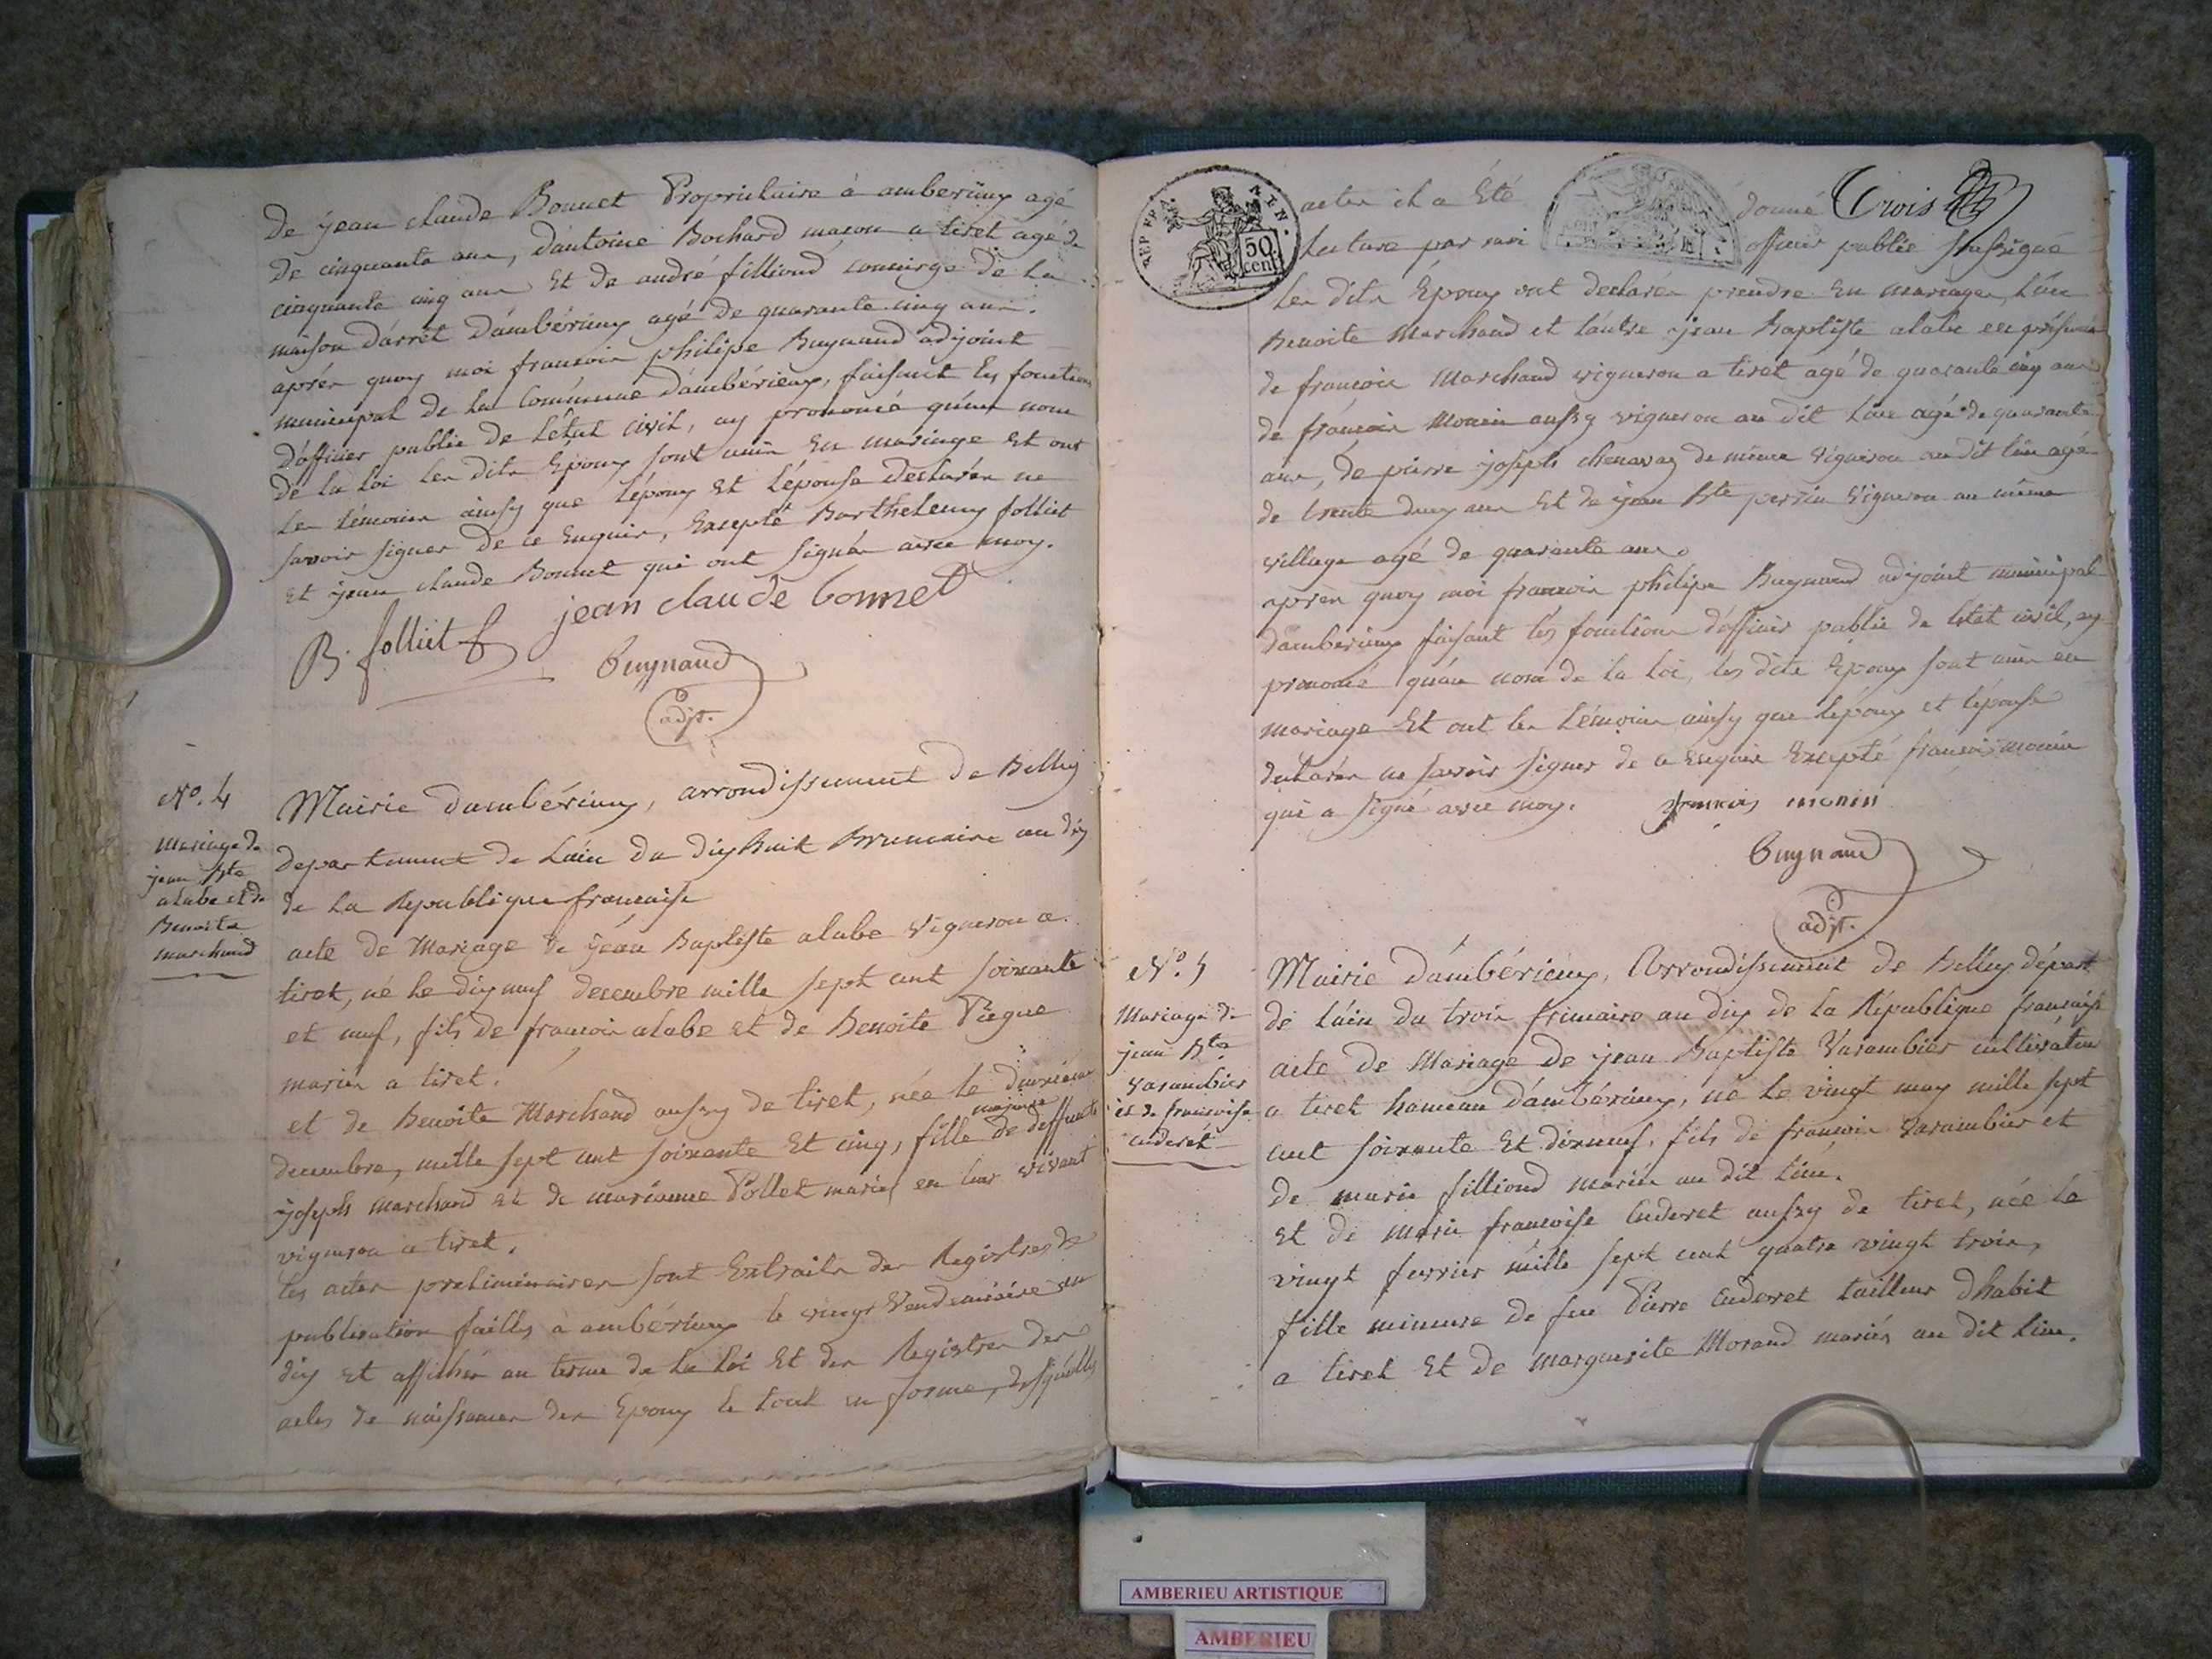 De jean claude Bonnet Propriétaire à amberieux agé
de cinquante ans, d'antoine Bochard maçon a tiret agé de
cinquante cinq ans Et de andré fillioud concierge de la
maison d'arrêt d'ambérieux agé de quarante cinq ans.
après quoy moi francois philipe Buynand adjoint
municipal de la Commune d'ambérieux, faisant les fonctions
d'officier public de l'état civil, ay prononcé qu'au nom
de la loi les dits Epoux sont unis En mariage et ont
les témoins ainsy que l'époux et l'épouse déclarés ne
savoir signer de ce Enquis, Excepté Barthelemy folliet
et jean claude Bonnet qui ont signés avec moy.
B. folliet jean claude bonnet
Buynand
adjt.
N.o 4
Mariage de
jean Bte
alabe et de
Benoite
marchand
Mairie d'ambérieux, arrondissement de Belley
departement de L'ain du dix huit Brumaire an dix
de la Republique francaise
acte de Mariage de jean Baptiste alabe vigneron a
tiret, né le dix neuf decembre mille sept cent soixante
et neuf, fils de francois alabe et de Benoite Piegue
mariés a tiret.
et de Benoite Marchand aussy de tiret, née le deuxieme
decembre, mille sept cent soixante Et cinq, fille majeure de deffunts
joseph marchand et de marianne Pollet mariés en leur vivant
vigneron a tiret.
les actes preliminaires sont Extraits des Registres de
publication faittes a ambérieux le vingt Vendemiaire an
dix et affichés au terme de la loi Et des Registres des
actes de naissances des Epoux le tout en forme, desquelles
50
cent
actes il a Eté donné Trois
Lecture par moi officier public soussigné
Les dits Epoux ont déclarés prendre En mariage, L'un
Benoite Marchand et l'autre jean Baptiste alabe en présence
de francois Marchand vigneron a tiret agé de quarante cinq ans
de francois Monin aussy vigneron au dit lieu agé de quarante
ans, de pierre joseph chenavaz de même vigneron au dit lieu agé
de trente deux ans Et de jean Bte perrin vigneron au même
village agé de quarante ans.
après quoy moi francois philipe Buynand adjoint municipal
d'amberieux faisant les fonctions d'officier public de létat civil, ay
prononcé qu'au nom de la loi, les dits Epoux sont unis en
mariage Et ont les témoins ainsy que l'époux et l'épouse
déclarés ne savoir signer de ce enquis Excepté francois monin
qui a signé avec moy. francois monin
Buynand
adjt.
N.o 5
Mariage de
jean Bte
Varambier
et de francoise
cuderet
Mairie d'ambérieux, Arrondissement de Belley départ.
de L'ain du trois frimaire an dix de la République francaise
acte de Mariage de jean Baptiste Varambier cultivateur
a tiret hameau d'ambérieux, né le vingt may mille sept
cent soixante Et dixneuf, fils de francois Varambier et
de marie fillioud mariés au dit lieu.
et de marie francoise Cuderet aussy de tiret, née le
vingt fevrier mille sept cent quatre vingt trois,
fille mineure de feu Pierre Cuderet tailleur d'habit
a tiret Et de marguerite Morand mariés au dit lieu.
AMBERIEU ARTISTIQUE
AMBERIEU